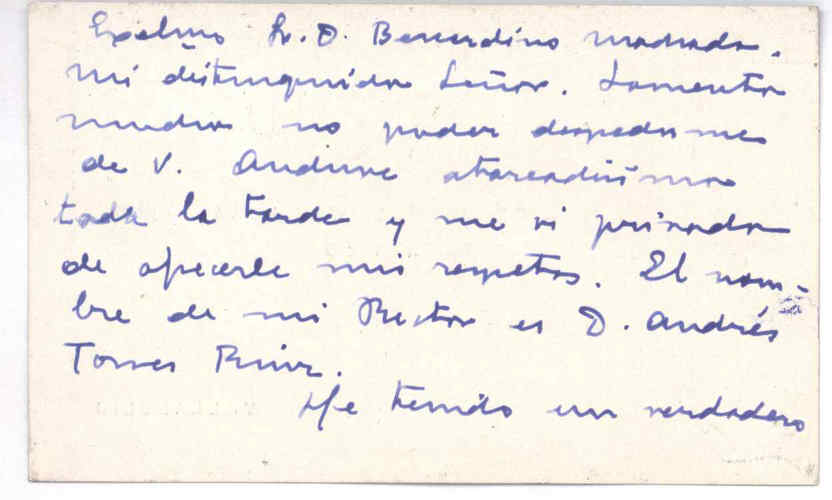 Excelmo Sr. D. Bernardino Machado.
Mi distinguido Señor. Lamento
mucho no poder despedirme
de V. Anduve atareadísimo
toda la tarde y me vi privado
de ofrecerle mis respetos. El nom-
bre de mi Rector es D. Andrés
Torres Ruiz.
He tenido un verdadero